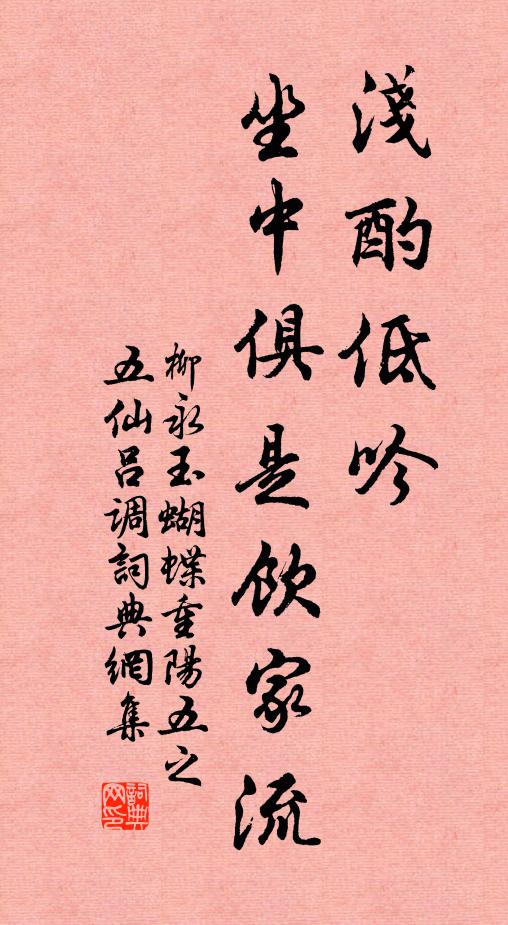 淺酌低吟
坐中俱是飲家流
柳永玉蝴蝶重陽五之
五仙呂調詞典網集
詞典網印